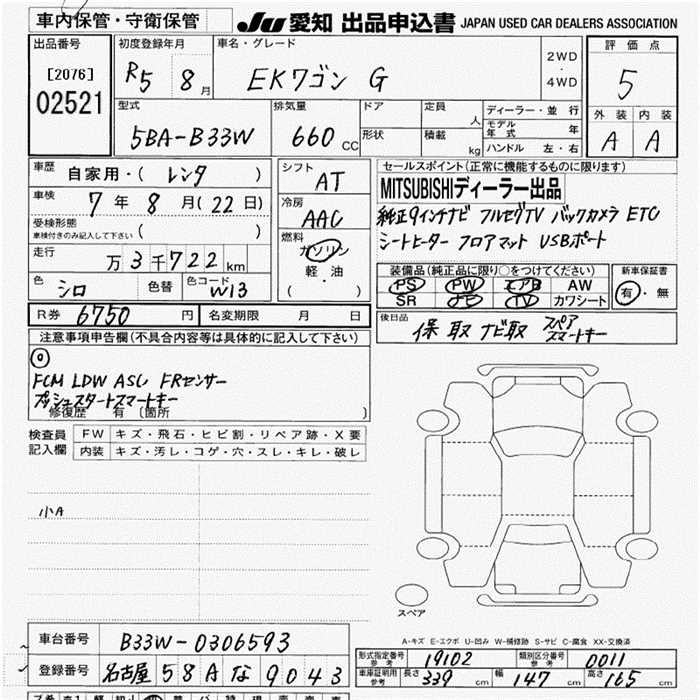 車内保管・守衛保管
JU 愛知 出品申込書 JAPAN USED CAR DEALERS ASSOCIATION
出品番号
[2076]
02521
初度登録年月
R5 8月
車名・グレード
EKワゴン G
2WD
・
4WD
評価点
5
外装 内装
A A
型式
5BA-B33W
排気量
660 CC
ドア
形状
定員 人
積載 kg
ディーラー・並行
モデル年式 年
ハンドル 左・右
車歴 自家用・( レンタ )
車検 7年 8月(22日)
受検形態
車検付きのみ記入して下さい ( )
走行 万3千722km
色 シロ 色替 色コード W13
シフト
AT
冷房
AAC
燃料
ガソリン
軽・油
( )
セールスポイント(正常に機能するものに限ります)
MITSUBISHIディーラー出品
純正9インチナビ フルセグTV バックカメラ ETC
シートヒーター フロアマット USBポート
装備品(純正品に限り○をつけてください)
PS PW エアB AW
SR ナビ TV カワシート
新車保証書
有・無
R券 6750円 名変期限 月 日
後日品
保 取 ナビ取 スペア
スマートキー
注意事項申告欄(不具合内容等は具体的に記入して下さい)
FCM LDW ASC FRセンサー
プッシュスタートスマートキー
修復歴 有 〔箇所 〕
検査員 FW キズ・飛石・ヒビ割・リペア跡・X要
記入欄 内装 キズ・汚レ・コゲ・穴・スレ・キレ・破レ
小A
スペア
A-キズ E-エクボ U-凹み W-補修跡 S-サビ C-腐食 XX-交換済
車台番号 B33W-0306593
登録番号 名古屋 58A な 9043
形式指定番号 参考 19102 類別区分番号 参考 0011
車庫証明用 参考 長さ 339cm 幅 147cm 高さ 165cm